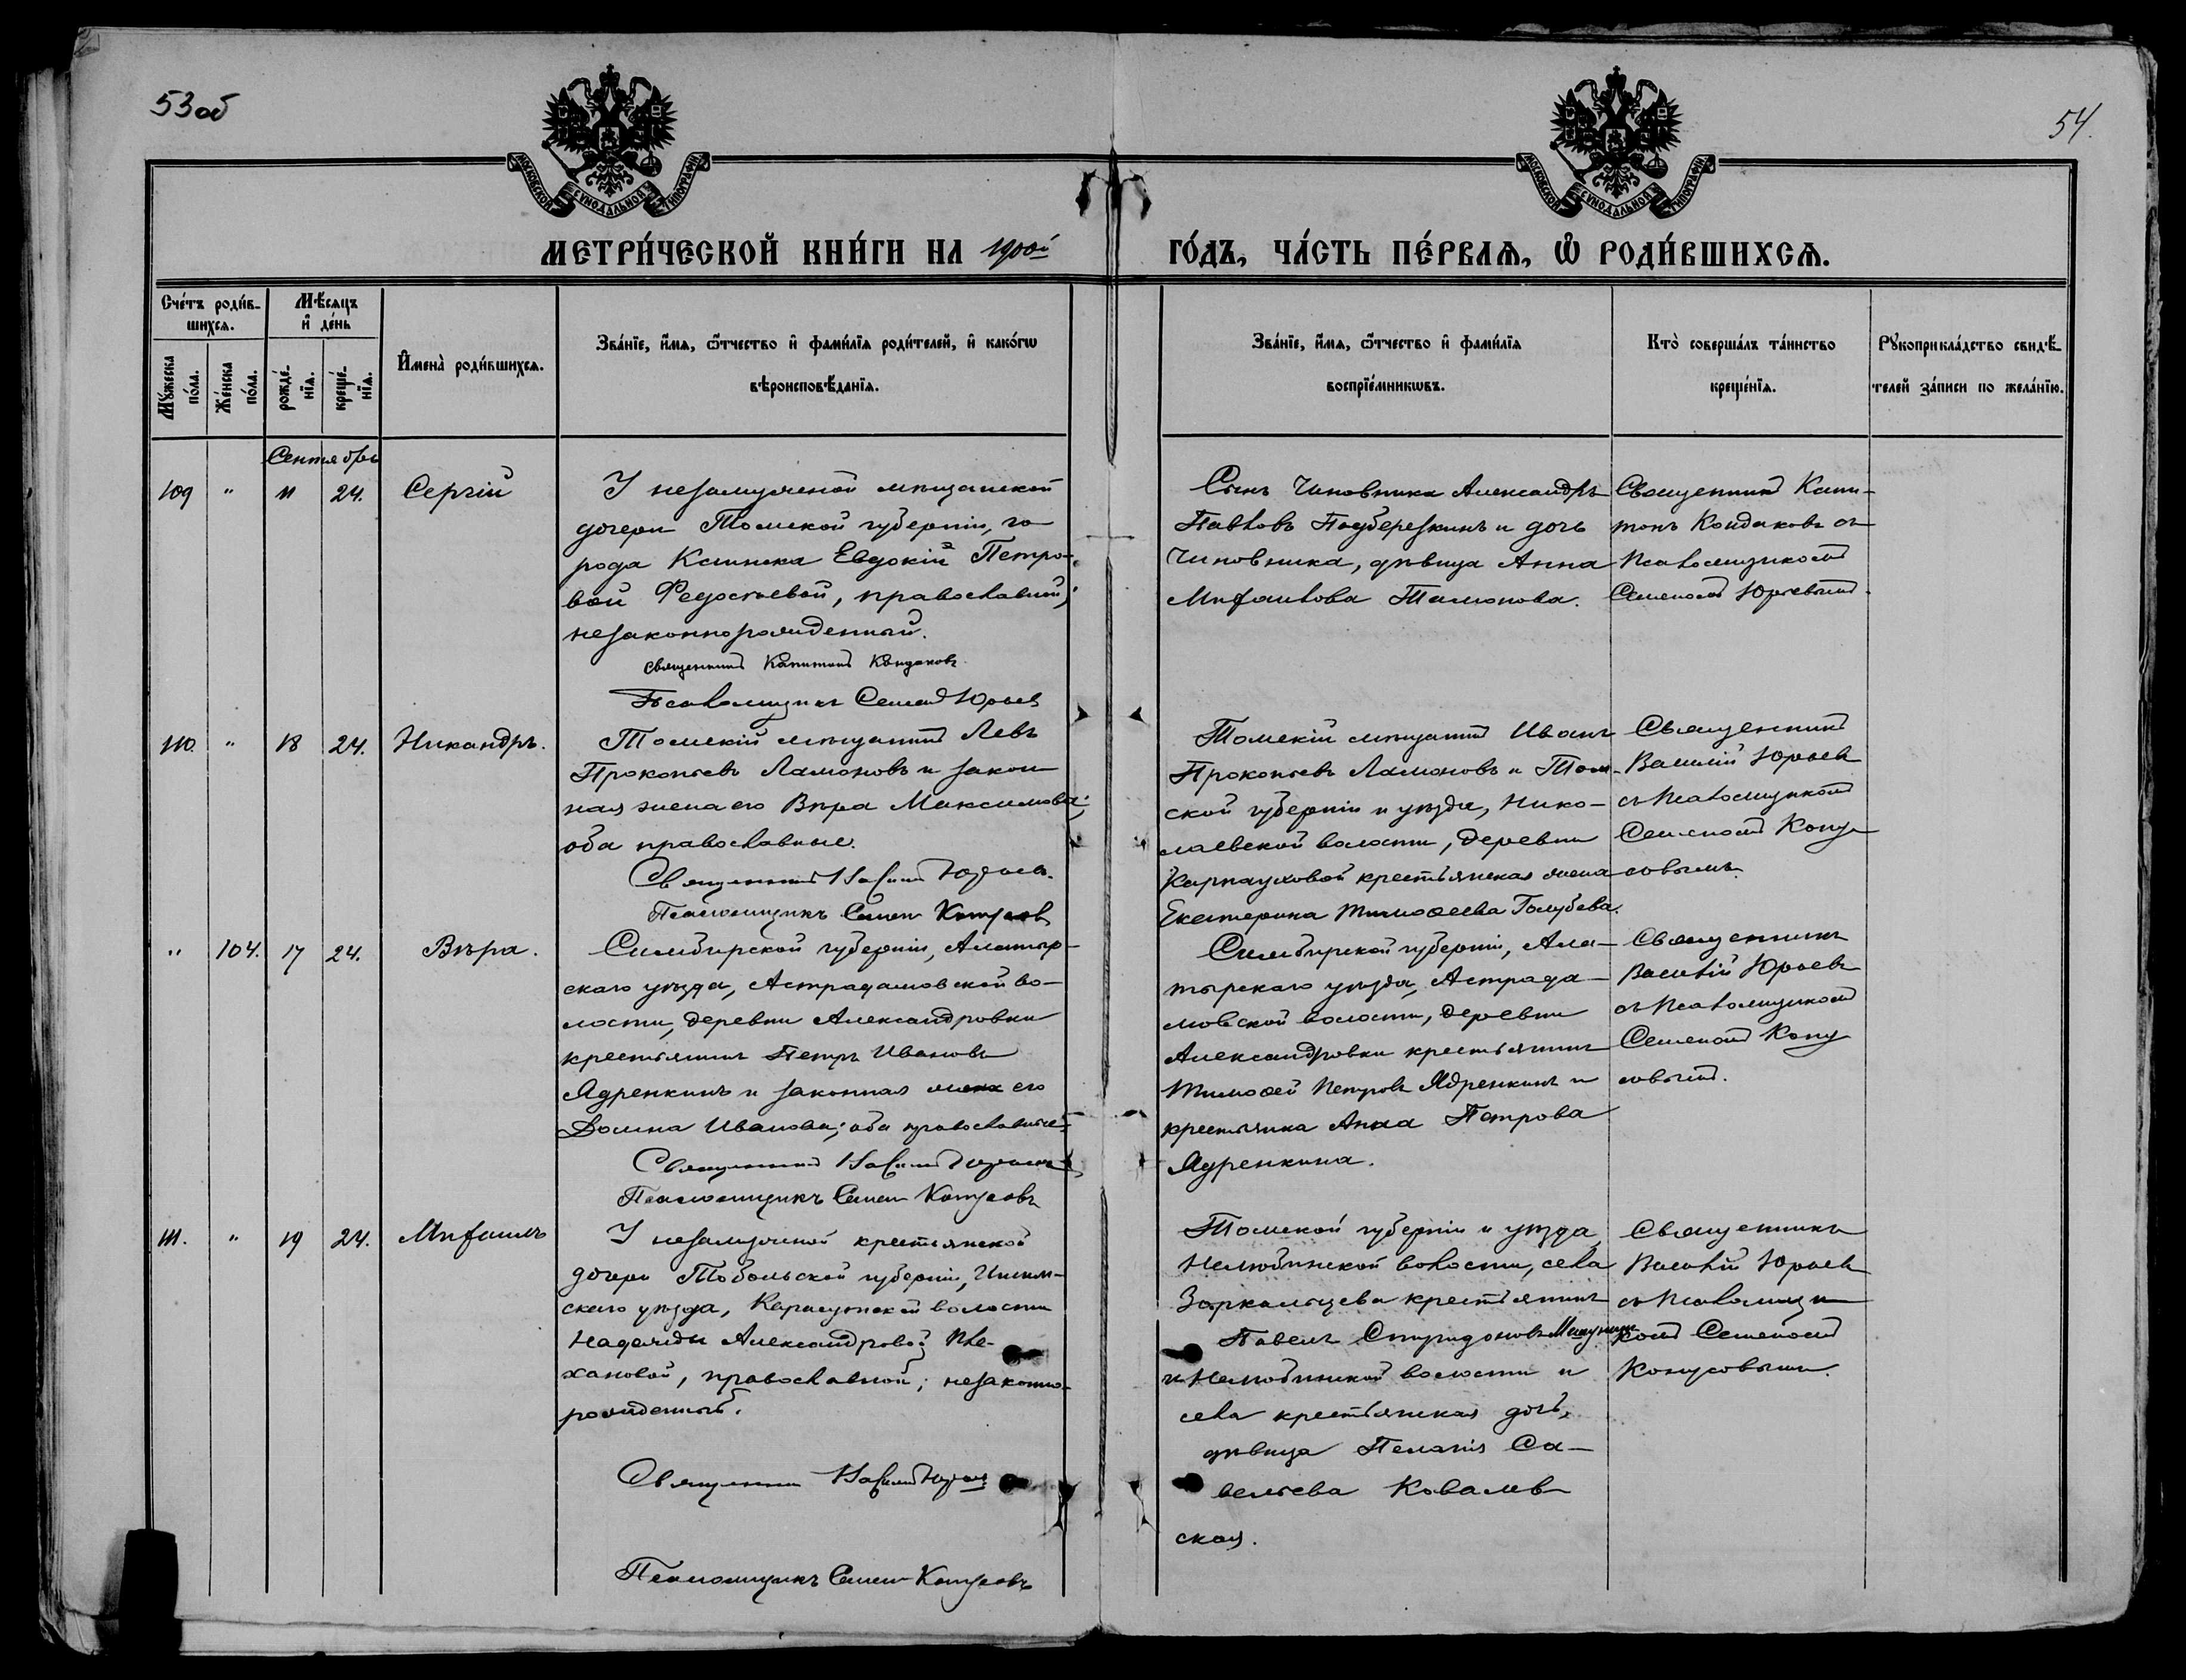 53 об
54.
МОСКОВСКОЙ СУНОДАЛЬНОЙ ТИПОГРАФІИ
МОСКОВСКОЙ СУНОДАЛЬНОЙ ТИПОГРАФІИ
МЕТРИ́ЧЕСКОЙ КНИ́ГИ НА 1900й ГО́ДЪ, ЧА́СТЬ ПЕ́РВАѦ, Ѽ РОДИ́ВШИХСѦ.
Сче́тъ роди́в-
шихсѧ.
Мѣ́сѧцъ
и҆ де́нь
Мꙋ́жеска по́ла.
Же́нска по́ла.
рожде́-нїѧ.
креще́-нїѧ.
И҆мена̀ роди́вшихсѧ.
Зва́нїе, и҆́мѧ, ѻ҆́тчество и҆ фами́лїѧ роди́телей, и҆ како́гѡ
вѣроисповѣ́данїѧ.
Зва́нїе, и҆́мѧ, ѻ҆́тчество и҆ фами́лїѧ
воспрїе́мникѡвъ.
Кто̀ соверша́лъ та́инство
креще́нїѧ.
Рꙋкоприкла́дство свидѣ́-
телей за́писи по жела́нїю.
Сентябрь
109 " 11 24. Сергій
У незамужней мѣщанской
дочери Томской губерніи, го-
рода Каинска Евдокіи Петро-
вой Федосѣевой, православной;
незаконнорожденный.
Священникъ Капитонъ Кондаковъ.
Псаломщикъ Семенъ Юрьевъ
Сынъ Чиновника Александръ
Павловъ Подберезкинъ и дочь
Чиновника, дѣвица Анна
Михайлова Тамонова.
Священникъ Капи-
тонъ Кондаковъ съ
псаломщикомъ
Семеномъ Юрьевымъ.
110. " 18 24. Никандръ.
Томскій мѣщанинъ Левъ
Прокопьевъ Ламоновъ и закон
ная жена его Вѣра Максимова;
оба православные.
Священникъ Василій Юрьевъ.
Псаломщикъ Семенъ Копусовъ
Томскій мѣщанинъ Иванъ
Прокопьевъ Ламоновъ и Том-
ской губерніи и уѣзда, Нико-
лаевской волости, деревни
Карнауховой крестьянская жена
Екатерина Тимоѳеева Голубева.
Священникъ
Василій Юрьевъ
съ псаломщикомъ
Семеномъ Копу
совымъ.
" 104. 17 24. Вѣра.
Симбирской губерніи, Алатыр-
скаго уѣзда, Астрадамовской во-
лости, деревни Александровки
крестьянинъ Петръ Ивановъ
Ядренкинъ и законная жена его
Домна Иванова; оба православные.
Священникъ Василій Юрьевъ
Псаломщикъ Семенъ Копусовъ
Симбирской губерніи, Ала-
тырскаго уѣзда, Астрада-
мовской волости, деревни
Александровки крестьянинъ
Тимоѳей Петровъ Ядренкинъ и
крестьянка Анна Петрова
Ядренкина.
Священникъ
Василій Юрьевъ
съ псаломщикомъ
Семеномъ Копу
совымъ.
111. " 19 24. Михаилъ
У незамужней крестьянской
дочери Тобольской губерніи, Ишим-
скаго уѣзда, волости
Надежды Александровой Пле-
хановой, православной; незаконно-
рожденный.
Священникъ Василій Юрьевъ
Псаломщикъ Семенъ Копусовъ
Томской губерніи и уѣзда,
Нелюбинской волости, села
Зоркальцева крестьянинъ
Павелъ Спиридоновъ
и Нелюбинской волости и
села крестьянская дочь,
дѣвица Пелагія Са-
вельева Ковалев
ская.
Священникъ
Василій Юрьевъ
съ псаломщи
комъ Семеномъ
Копусовымъ.